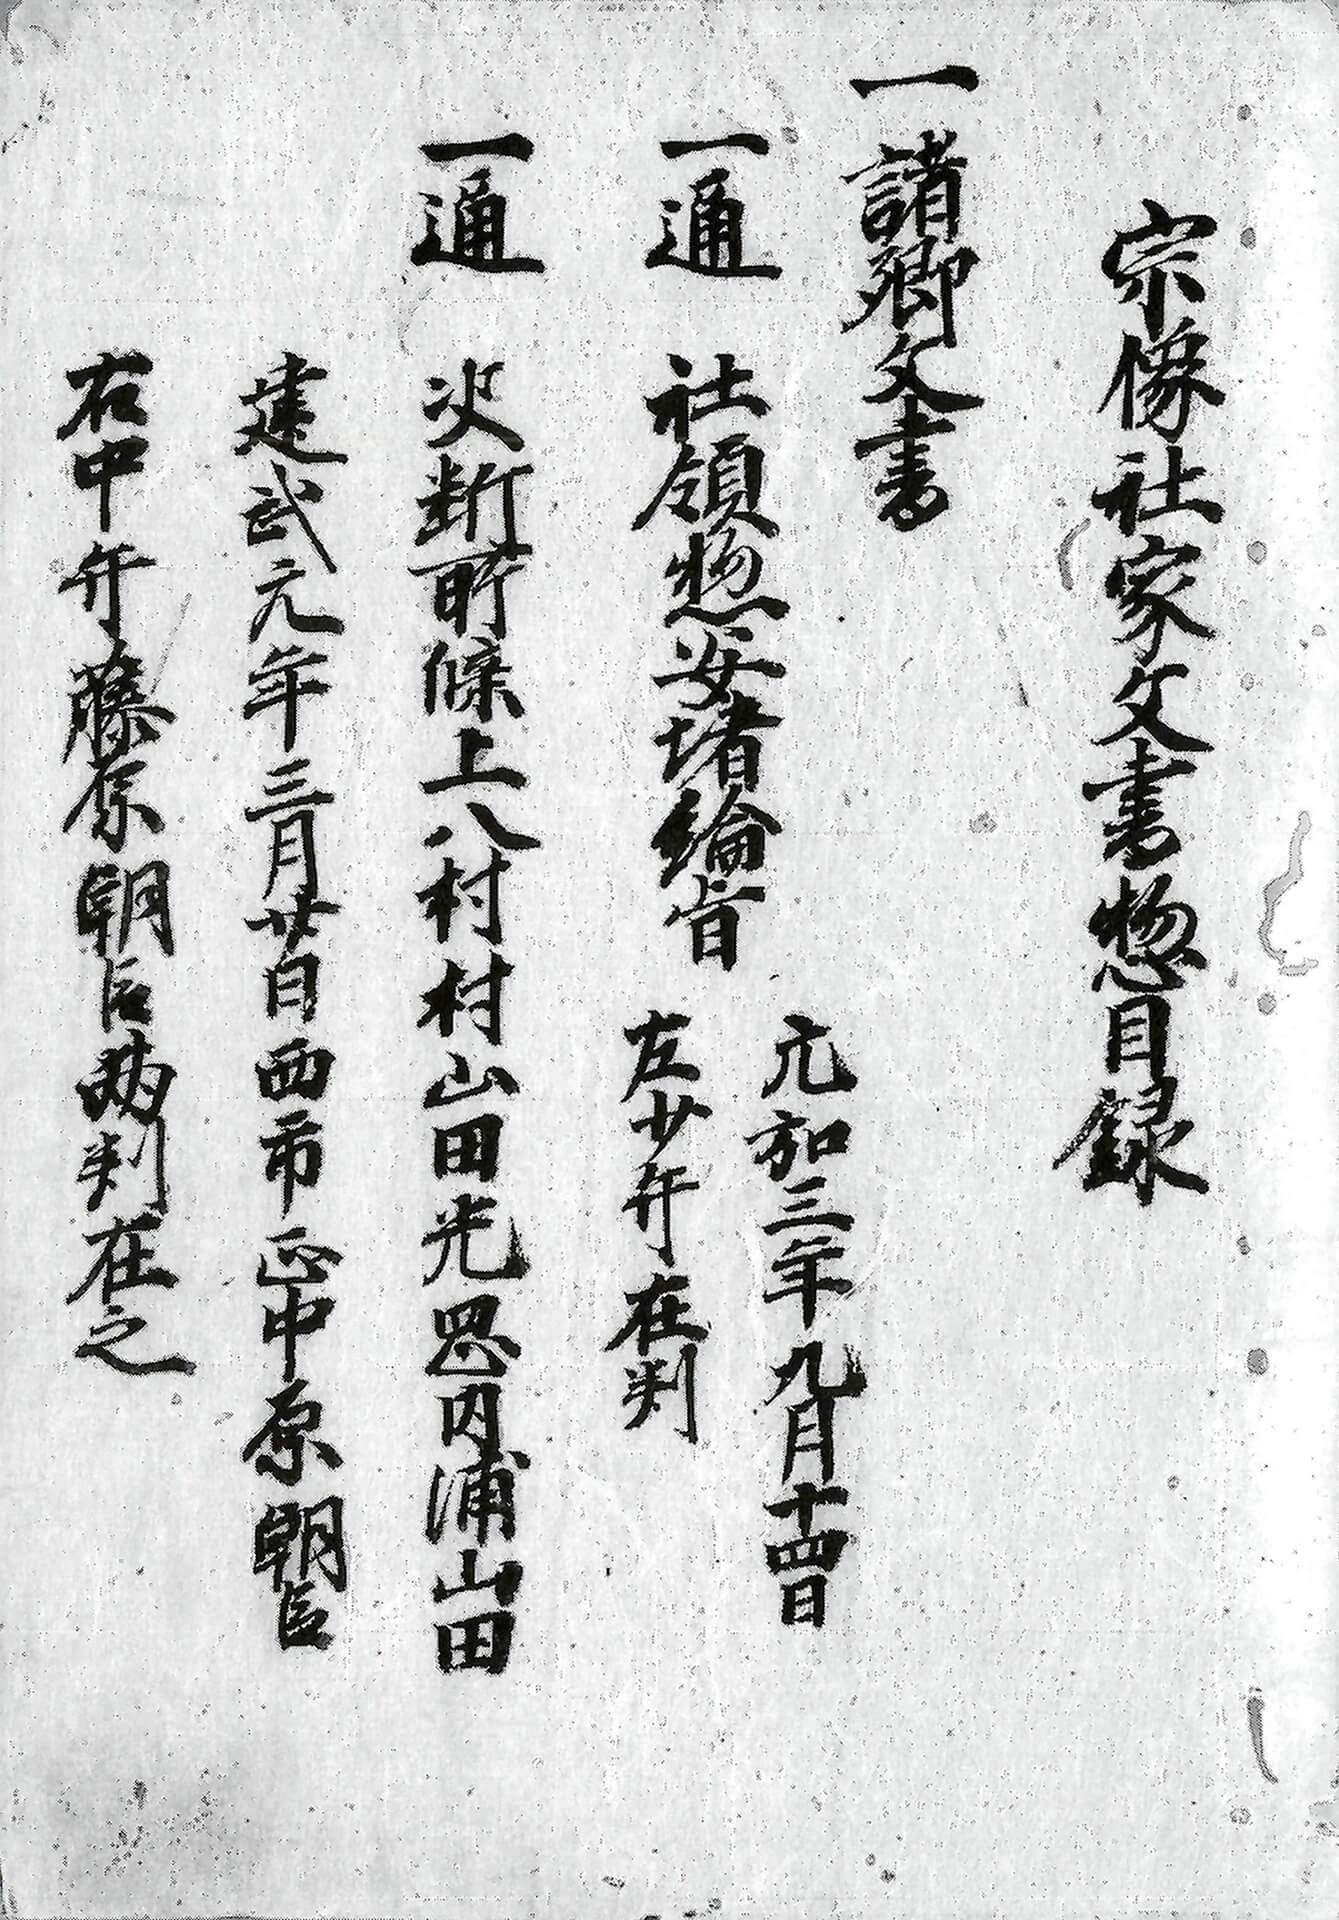 宗像社家文書惣目録
一諸卿文書
一通　社領惣安堵綸旨
元弘三年九月十四日
左少弁在判
一通　決断所牒上八村村山田光岡内浦山田
建武元年三月廿日西市正中原朝臣
右中弁藤原朝臣両判在之